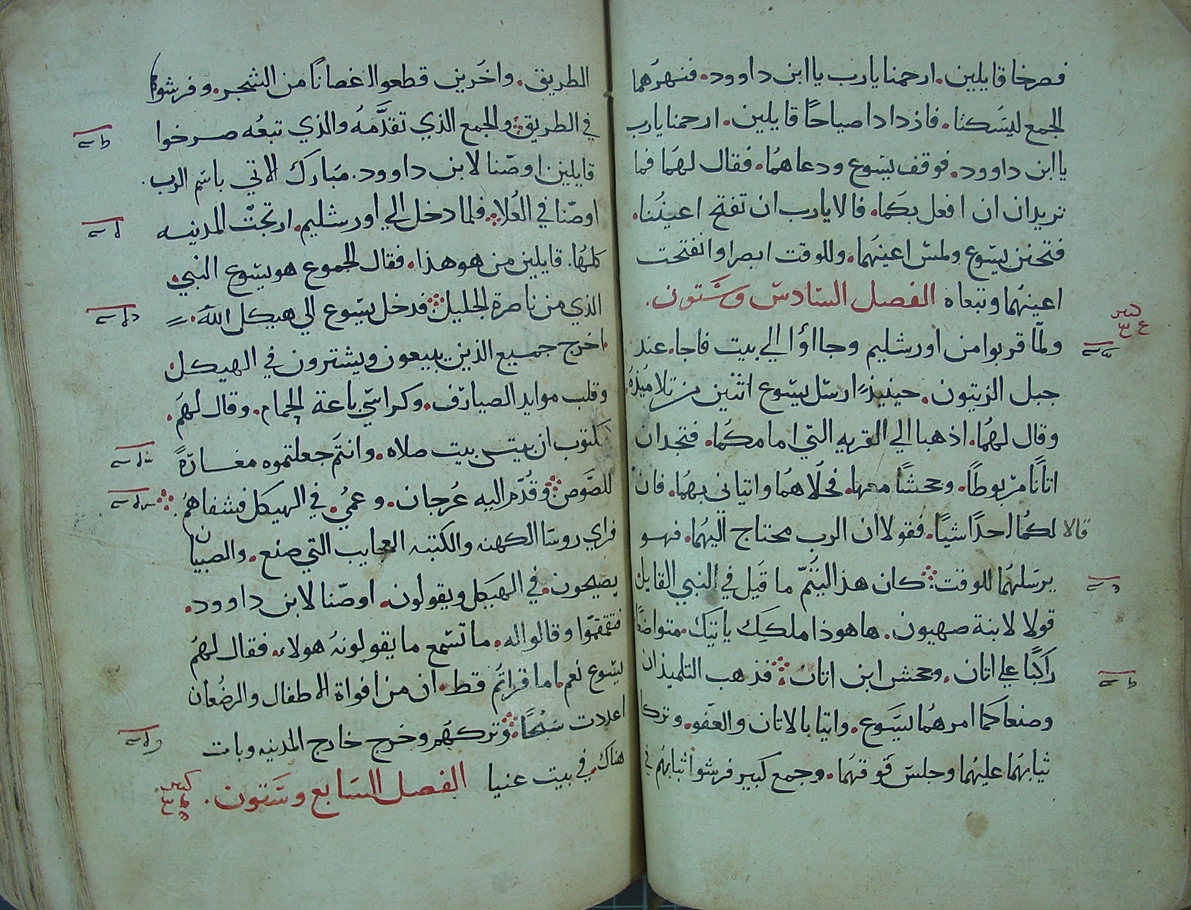 فصرخا قايلين. ارحمنا يارب يا ابن داوود. فنهرهما
الجمع ليسكتا. فازدادا صياحًا قايلين. ارحمنا يارب
يا ابن داوود. فوقف يسوع ودعاهما. فقال لهما فما
تريدان ان افعل بكما. قالا يارب ان تفتح اعيننا.
فتحنن يسوع ولمس اعينهما. وللوقت ابصرا وانفتحت
اعينهما وتبعاه الفصل السادس وستون.
ولما قربوا من اورشليم وجاأوا الي بيت فاجا. عند
جبل الزيتون. حينيذٍ ارسل يسوع اثنين من تلاميذه
وقال لهما. اذهبا الي القريه التي امامكما. فتجدان
اتانًا مربوطًا. وجحشًا معها. فحلاهما واتياني بهما. فان
قالا لكما احدًا شيًا. فقولا ان الرب محتاج اليهما. فهو
يرسلهما للوقت. كان هذا ليتم ما قيل في النبي القايل
قولا لابنة صهيون. ها هوذا ملككِ ياتيك. متواضعًا
راكبًا علي اتان. وجحش ابن اتان. فذهب التلميذان
وصنعا كما امرهما يسوع. واتيا بالاتان والعفو. وتركا
ثيابهما عليهما وجلس فوقهما. وجمع كبير فرشوا ثيابهم في
الطريق. واخرين قطعوا اغصانًا من الشجر. وفرشوا
في الطريق والجمع الذي تقدَّمهُ والذي تبعُه صرخوا
قايلين اوصّنا لابن داوود. مبارك الاتي باسم الرب.
اوصّنا في العُلا. فلما دخل الي اورشليم. ارتجّت المدينه
كلها. قايلين من هو هذا. فقال الجموع هو يسوع النبي.
الذي من ناصرة الجليل. فدخل يسوع الي هيكل الله.
اخرج جميع الذين يبيعون ويشترون في الهيكل.
وقلب موايد الصيارف. وكراسي باعة الحمام. وقال لهم.
مكتوب ان بيتي بيت صلاه. وانتم جعلتموه مغارةً
للصوص وقدم اليه عُرجان. وعمي. في الهيكل فشفاهم
فراي روسا الكهنه والكتبه العجايب التي صنع. والصبيان
يصيحون. في الهيكل ويقولون. اوصّنا لابن داوود.
فتقمقموا وقالوا له. ما تسمع ما يقولونُه هولا. فقال لهم
يسوع نعم. اما قراتم قط. ان من افواة الاطفال والرضعان
اعددت سُبحًا. وتركهم وخرج خارج المدينه وبات
هناك. في بيت عنيا الفصل السابع وستون.